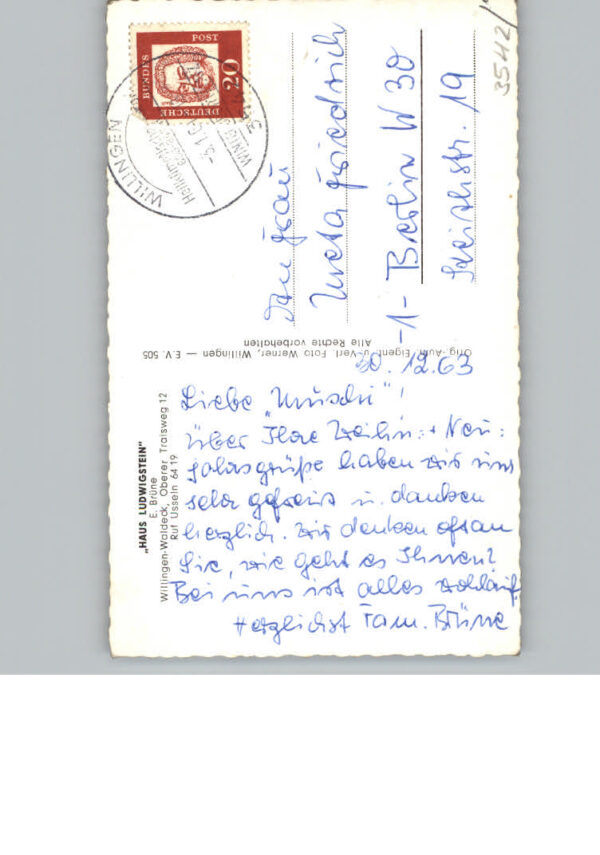 „HAUS LUDWIGSTEIN"
E. Brüne
Willingen-Waldeck, Oberer Tratsweg 12
Ruf Usseln 64 19
30.12.63
Liebe „Muschi"!
Über Ihre Weihn. + Neu=
jahrsgrüße haben wir uns
sehr gefreut u. danken
herzlich. Wir denken oft an
Sie, wie geht es Ihnen?
Bei uns ist alles wohlauf.
Herzlichst Fam. Brüne
Orig.-Aufn. Eigent. u. Verl. Foto Werner, Willingen — E.V. 505
Alle Rechte vorbehalten
Frau
Meta Friedrich
-1- Berlin W 30
str. 19
3542/
DEUTSCHE
BUNDES
POST
20
WILLINGEN